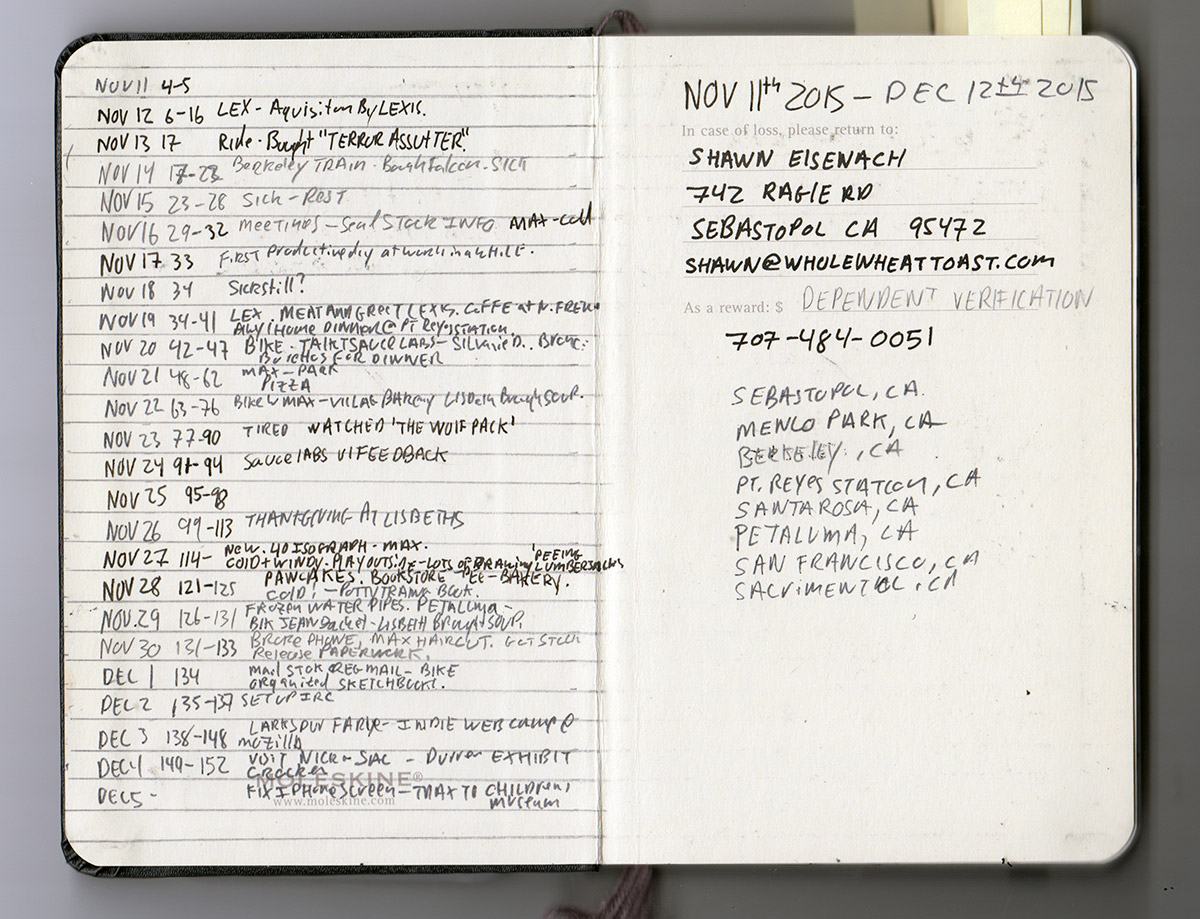 NOV 11 4-5
NOV 12 6-16 LEX - Aquisiton By LEXIS.
NOV 13 17 Ride - Bought "TERROR ASSULTER"
NOV 14 17-23 Berkeley TRAIN - Bought Falcon. SICK
NOV 15 23-28 Sick - REST
NOV 16 29-32 MEETINGS - Seal STOCK INFO MAX-Call
NOV 17 33 FIRST Productive day at work in a while.
NOV 18 34 Sick still?
NOV 19 34-41 LEX. MEAT AND GREET LEXIS. COFFE at N.
Home DINNER @ PT Reyes STATION.
NOV 20 42-47 BIKE - TALKT SAUCE LABS - Silvanie D..
FOR DINNER
NOV 21 48-62 MAX - PARK
PIZZA
NOV 22 63-76 BIKE w MAX - VILLAG BAKERY LISBETH Brought SOUP.
NOV 23 77-90 TIRED WATCHED 'THE WOLF PACK'
NOV 24 91-94 Sauce LABS UI FEEDBACK
NOV 25 95-98
NOV 26 99-113 THANKGIVING AT LISBETHS
NOV 27 114- NEW .40 ISOGRAPH - MAX.
COLD + WINDY. PLAY OUTSIDE - LOTS OF DRAWING 'PEEING LUMBERJACKS
NOV 28 121-125 PANCAKES. BOOKSTORE - PEE - BAKERY.
COLD! - POTTY TRAING Book.
NOV.29 126-131 FROZEN WATER PIPES. PETALUMA -
BIK JEAN Jacket - LISBETH Brought SOUP.
NOV 30 131-133 BROKE PHONE, MAX HAIRCUT. GET STOCK
Release PAPERWORK.
DEC 1 134 Mail STOK REG MAIL - BIKE
organized SKETCHBOOKS.
DEC 2 135-137 SETUP IRC
DEC 3 138-148 LARKSPUR FARYR - INDIE WEB CAMP @
MOZILLA
DEC 4 149-152 VISIT NICK - SAC - Durrer EXHIBIT
CROCKER
MOLESKINE®
DEC 5 - FIX IPHONE SCREEN - MAX TO CHILDRENS
www.moleskine.com
MUSEUM
NOV 11th 2015 - DEC 12th 2015
In case of loss, please return to:
SHAWN EISENACH
742 RAGLE RD
SEBASTOPOL CA 95472
SHAWN@WHOLEWHEATTOAST.COM
As a reward: $ DEPENDENT VERIFICATION
707-484-0051
SEBASTOPOL, CA.
MENLO PARK, CA
BERKELEY, CA
PT. REYES STATION, CA
SANTA ROSA, CA
PETALUMA, CA
SAN FRANCISCO, CA
SACRIMENTO, CA